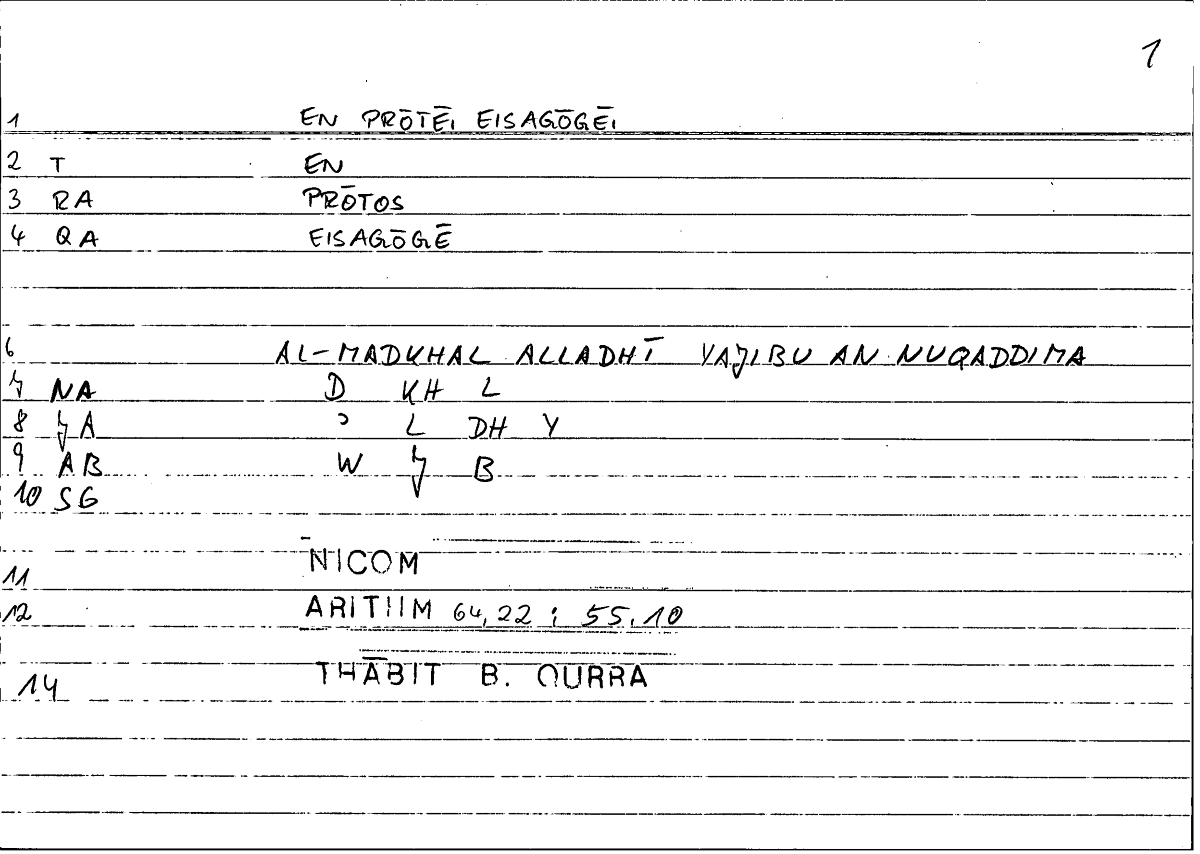 1
1 EN PRŌTĒI EISAGŌGĒI
2 T EN
3 RA PRŌTOS
4 QA EISAGŌGĒ
6 AL-MADKHAL ALLADHĪ YAJIBU AN NUQADDIMA
7 NA D KH L
8 JA ʾ L DH Y
9 AB W J B
10 SG
11 NICOM
12 ARITHM 64,22 ; 55,10
14 THĀBIT B. QURRA